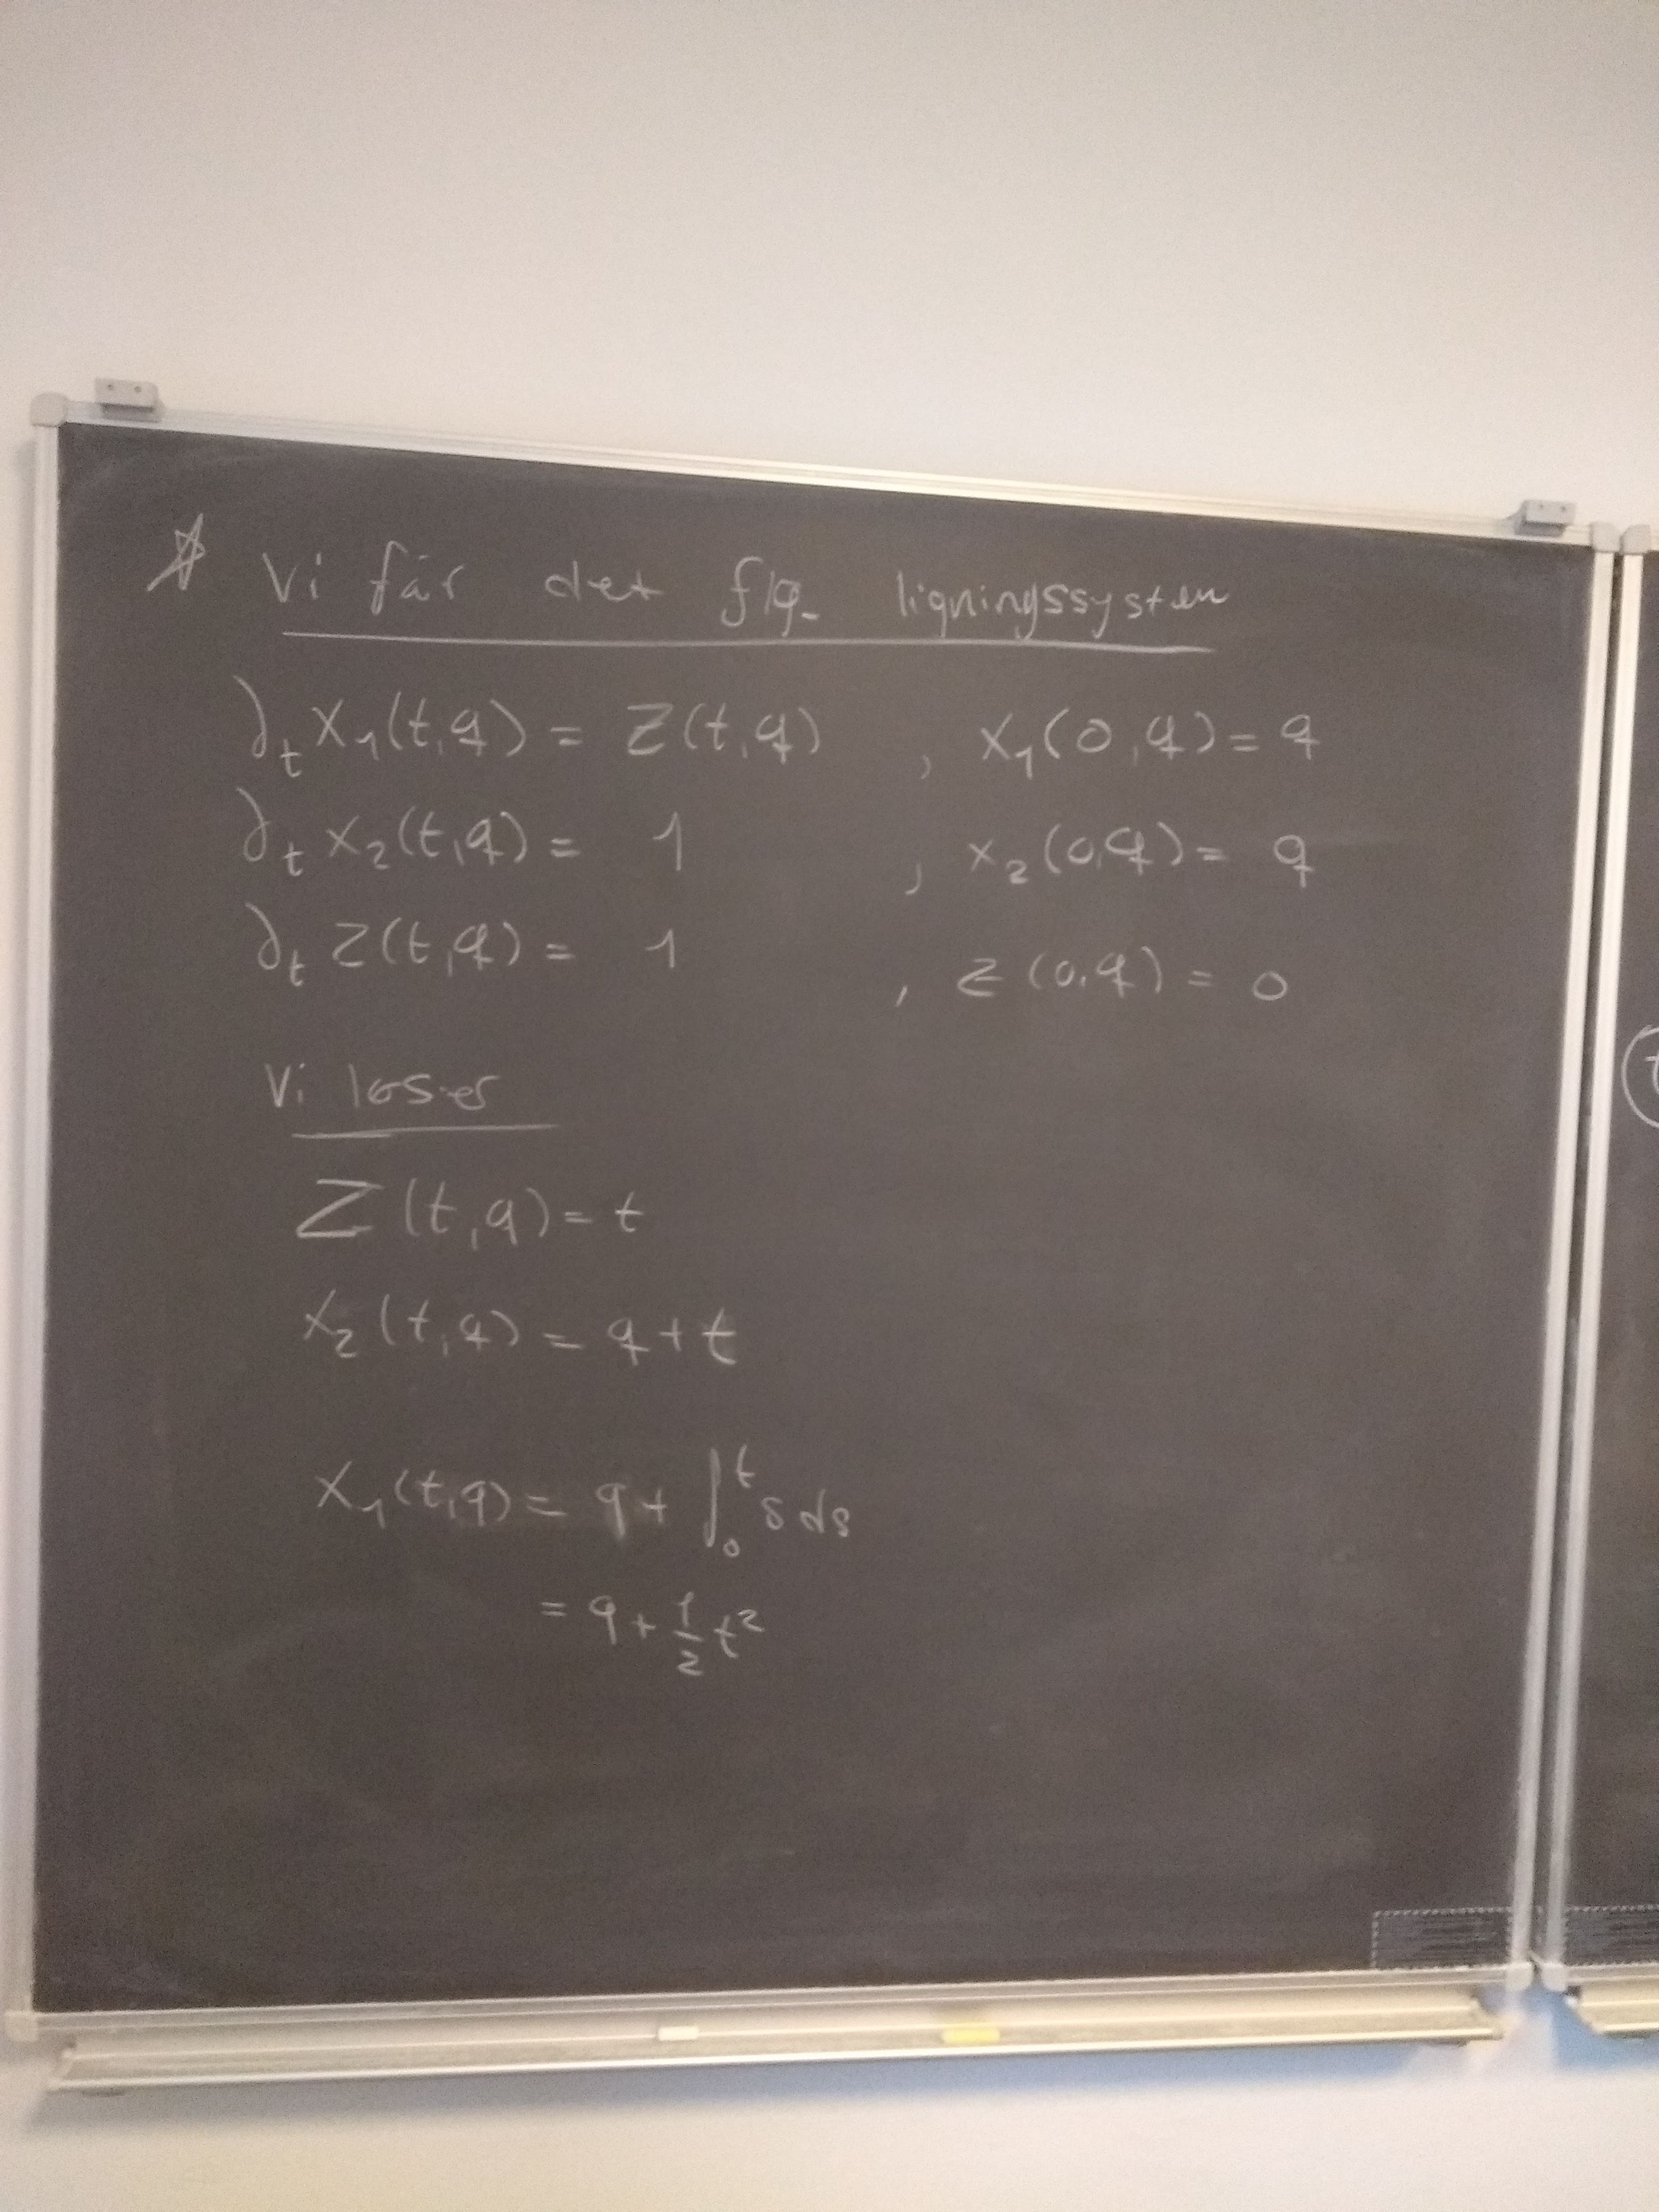 ☆ Vi får det flg. ligningssystem
∂ₜ X₁(t,q) = Z(t,q) , X₁(0,q) = q
∂ₜ X₂(t,q) = 1 , X₂(0,q) = q
∂ₜ Z(t,q) = 1 , Z(0,q) = 0
Vi løser
Z(t,q) = t
X₂(t,q) = q + t
X₁(t,q) = q + ∫₀ᵗ s ds
= q + 1/2 t²